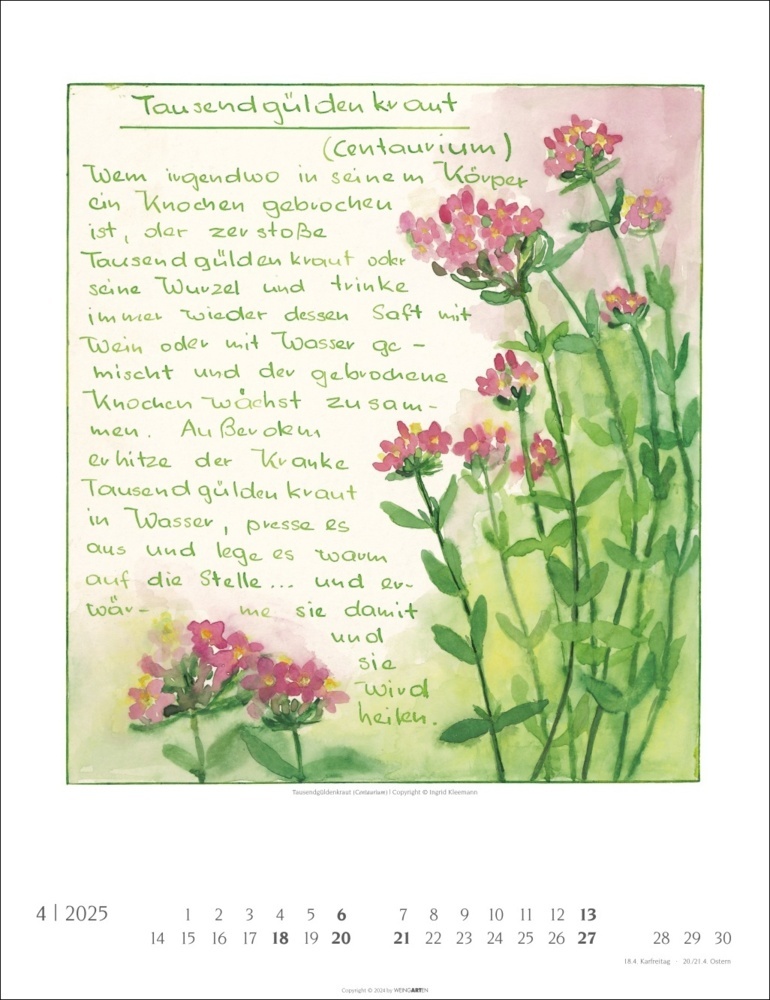 Tausendgüldenkraut
(Centaurium)
Wem irgendwo in seinem Körper
ein Knochen gebrochen
ist, der zerstoße
Tausendgüldenkraut oder
seine Wurzel und trinke
immer wieder dessen Saft mit
Wein oder mit Wasser ge-
mischt und der gebrochene
Knochen wächst zusam-
men. Außerdem
erhitze der Kranke
Tausendgüldenkraut
in Wasser, presse es
aus und lege es warm
auf die Stelle... und er-
wär- me sie damit
und
sie
wird
heilen.
Tausendgüldenkraut (Centaurium) | Copyright © Ingrid Kleemann
4 | 2025
1 2 3 4 5 6 7 8 9 10 11 12 13
14 15 16 17 18 19 20 21 22 23 24 25 26 27 28 29 30
18.4. Karfreitag · 20./21.4. Ostern
Copyright © 2024 by WEINGARTEN